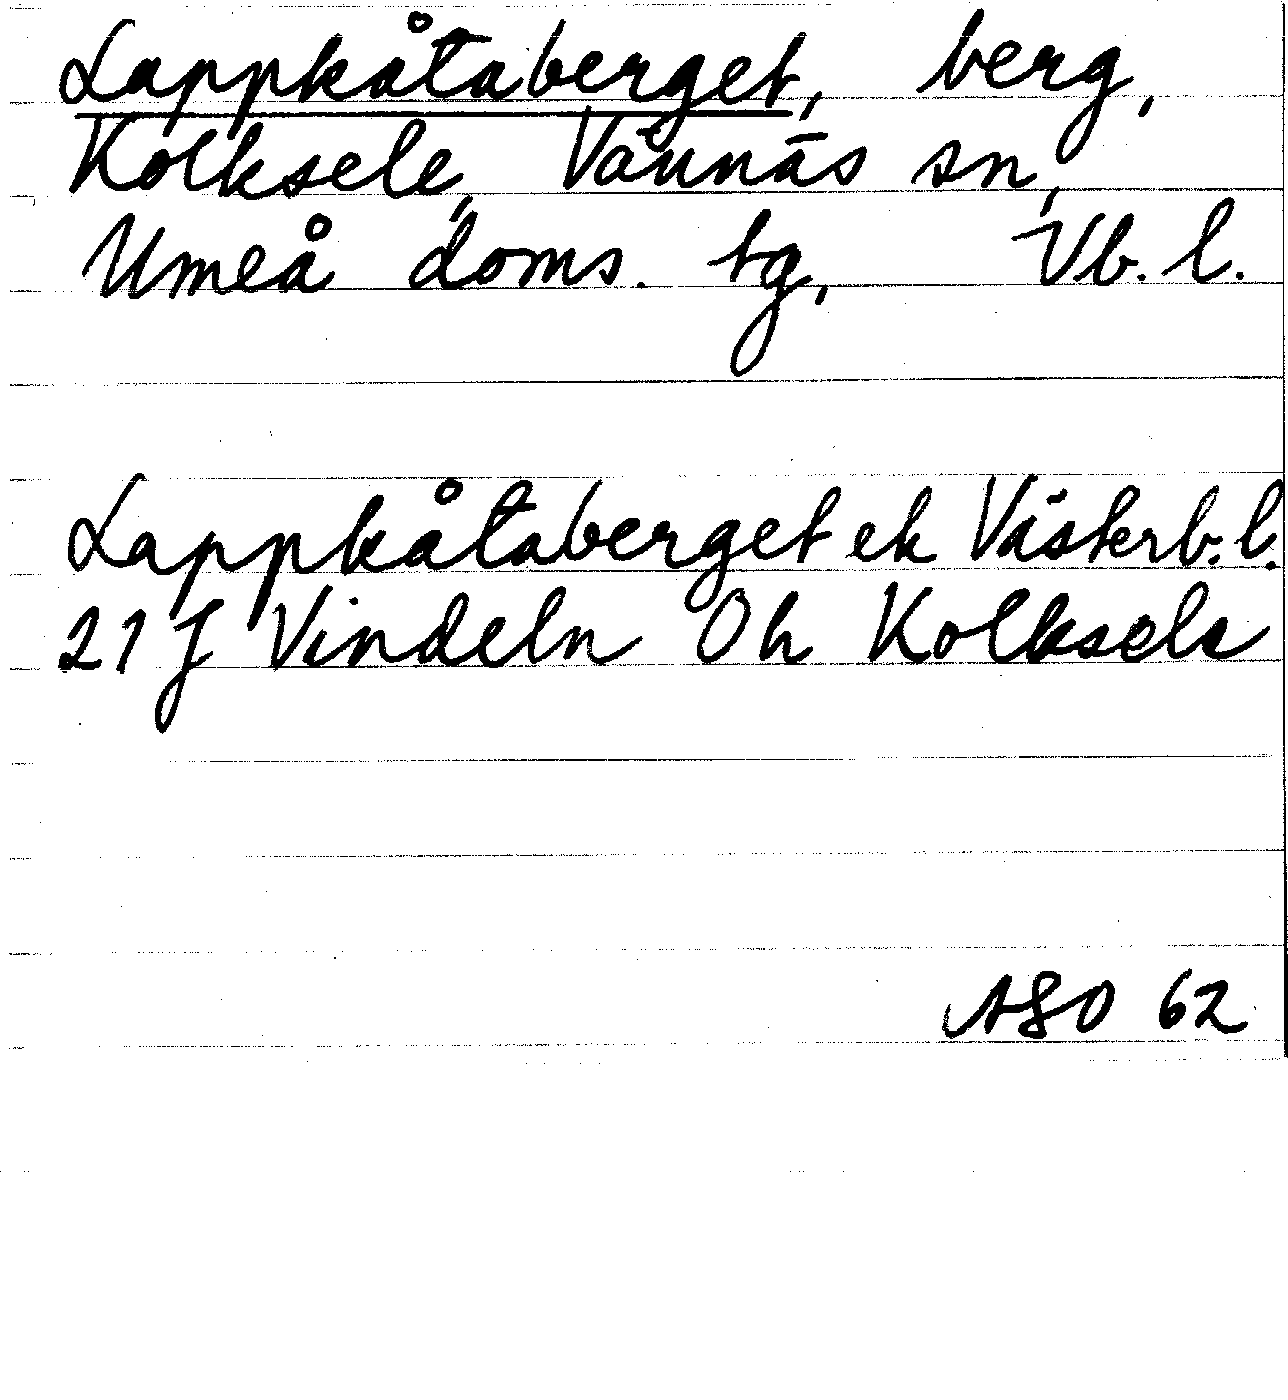 Lappkåtaberget, berg,
Kolksele, Vännäs sn,
Umeå doms. tg, Vb. l.
Lappkåtaberget ek Västerb. l.
21 J Vindeln Oh Kolksele
ASO 62